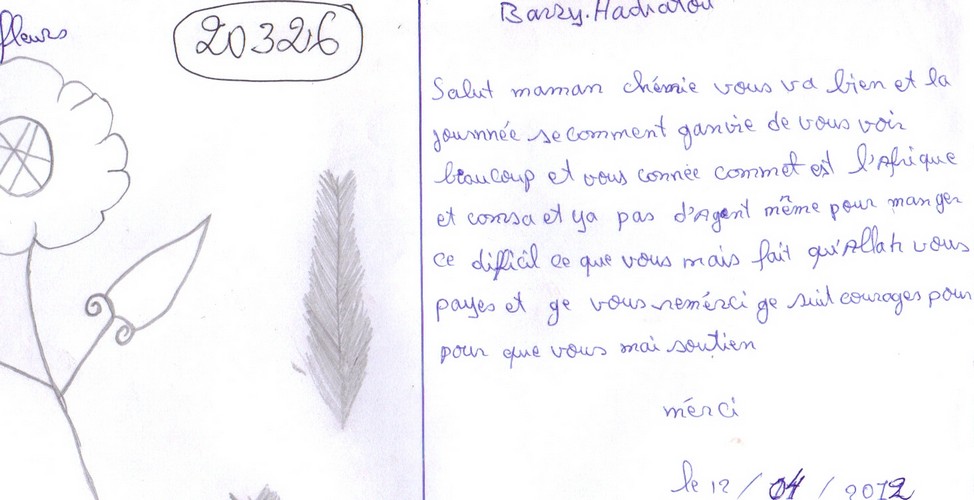 fleurs
20326
Barry.Hadiatou
Salut maman chérie vous va bien et la
journnée se comment ganvie de vous voir
beaucoup et vous connée commet est l'Afrique
et comsa et ya pas d'Agent même pour manger
ce difficil ce que vous mais fait qu'Allah vous
payes et ge vous remérci ge suit courages pour
pour que vous mai soutien
mérci
le 12 / 04 / 2012